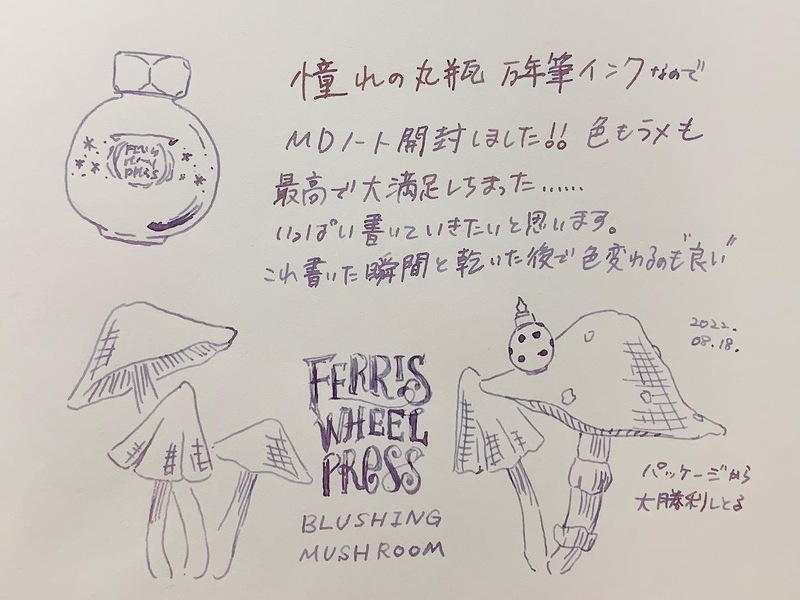 憧れの丸瓶 万年筆インクなので
MDノート開封しました!! 色もラメも
最高で大満足しちまった……
いっぱい書いていきたいと思います。
これ書いた瞬間と乾いた後で色変わるのも"良い"
2022.
08.18.
FERRIS
WHEEL
PRESS
BLUSHING
MUSHROOM
パッケージから
大勝利しとる